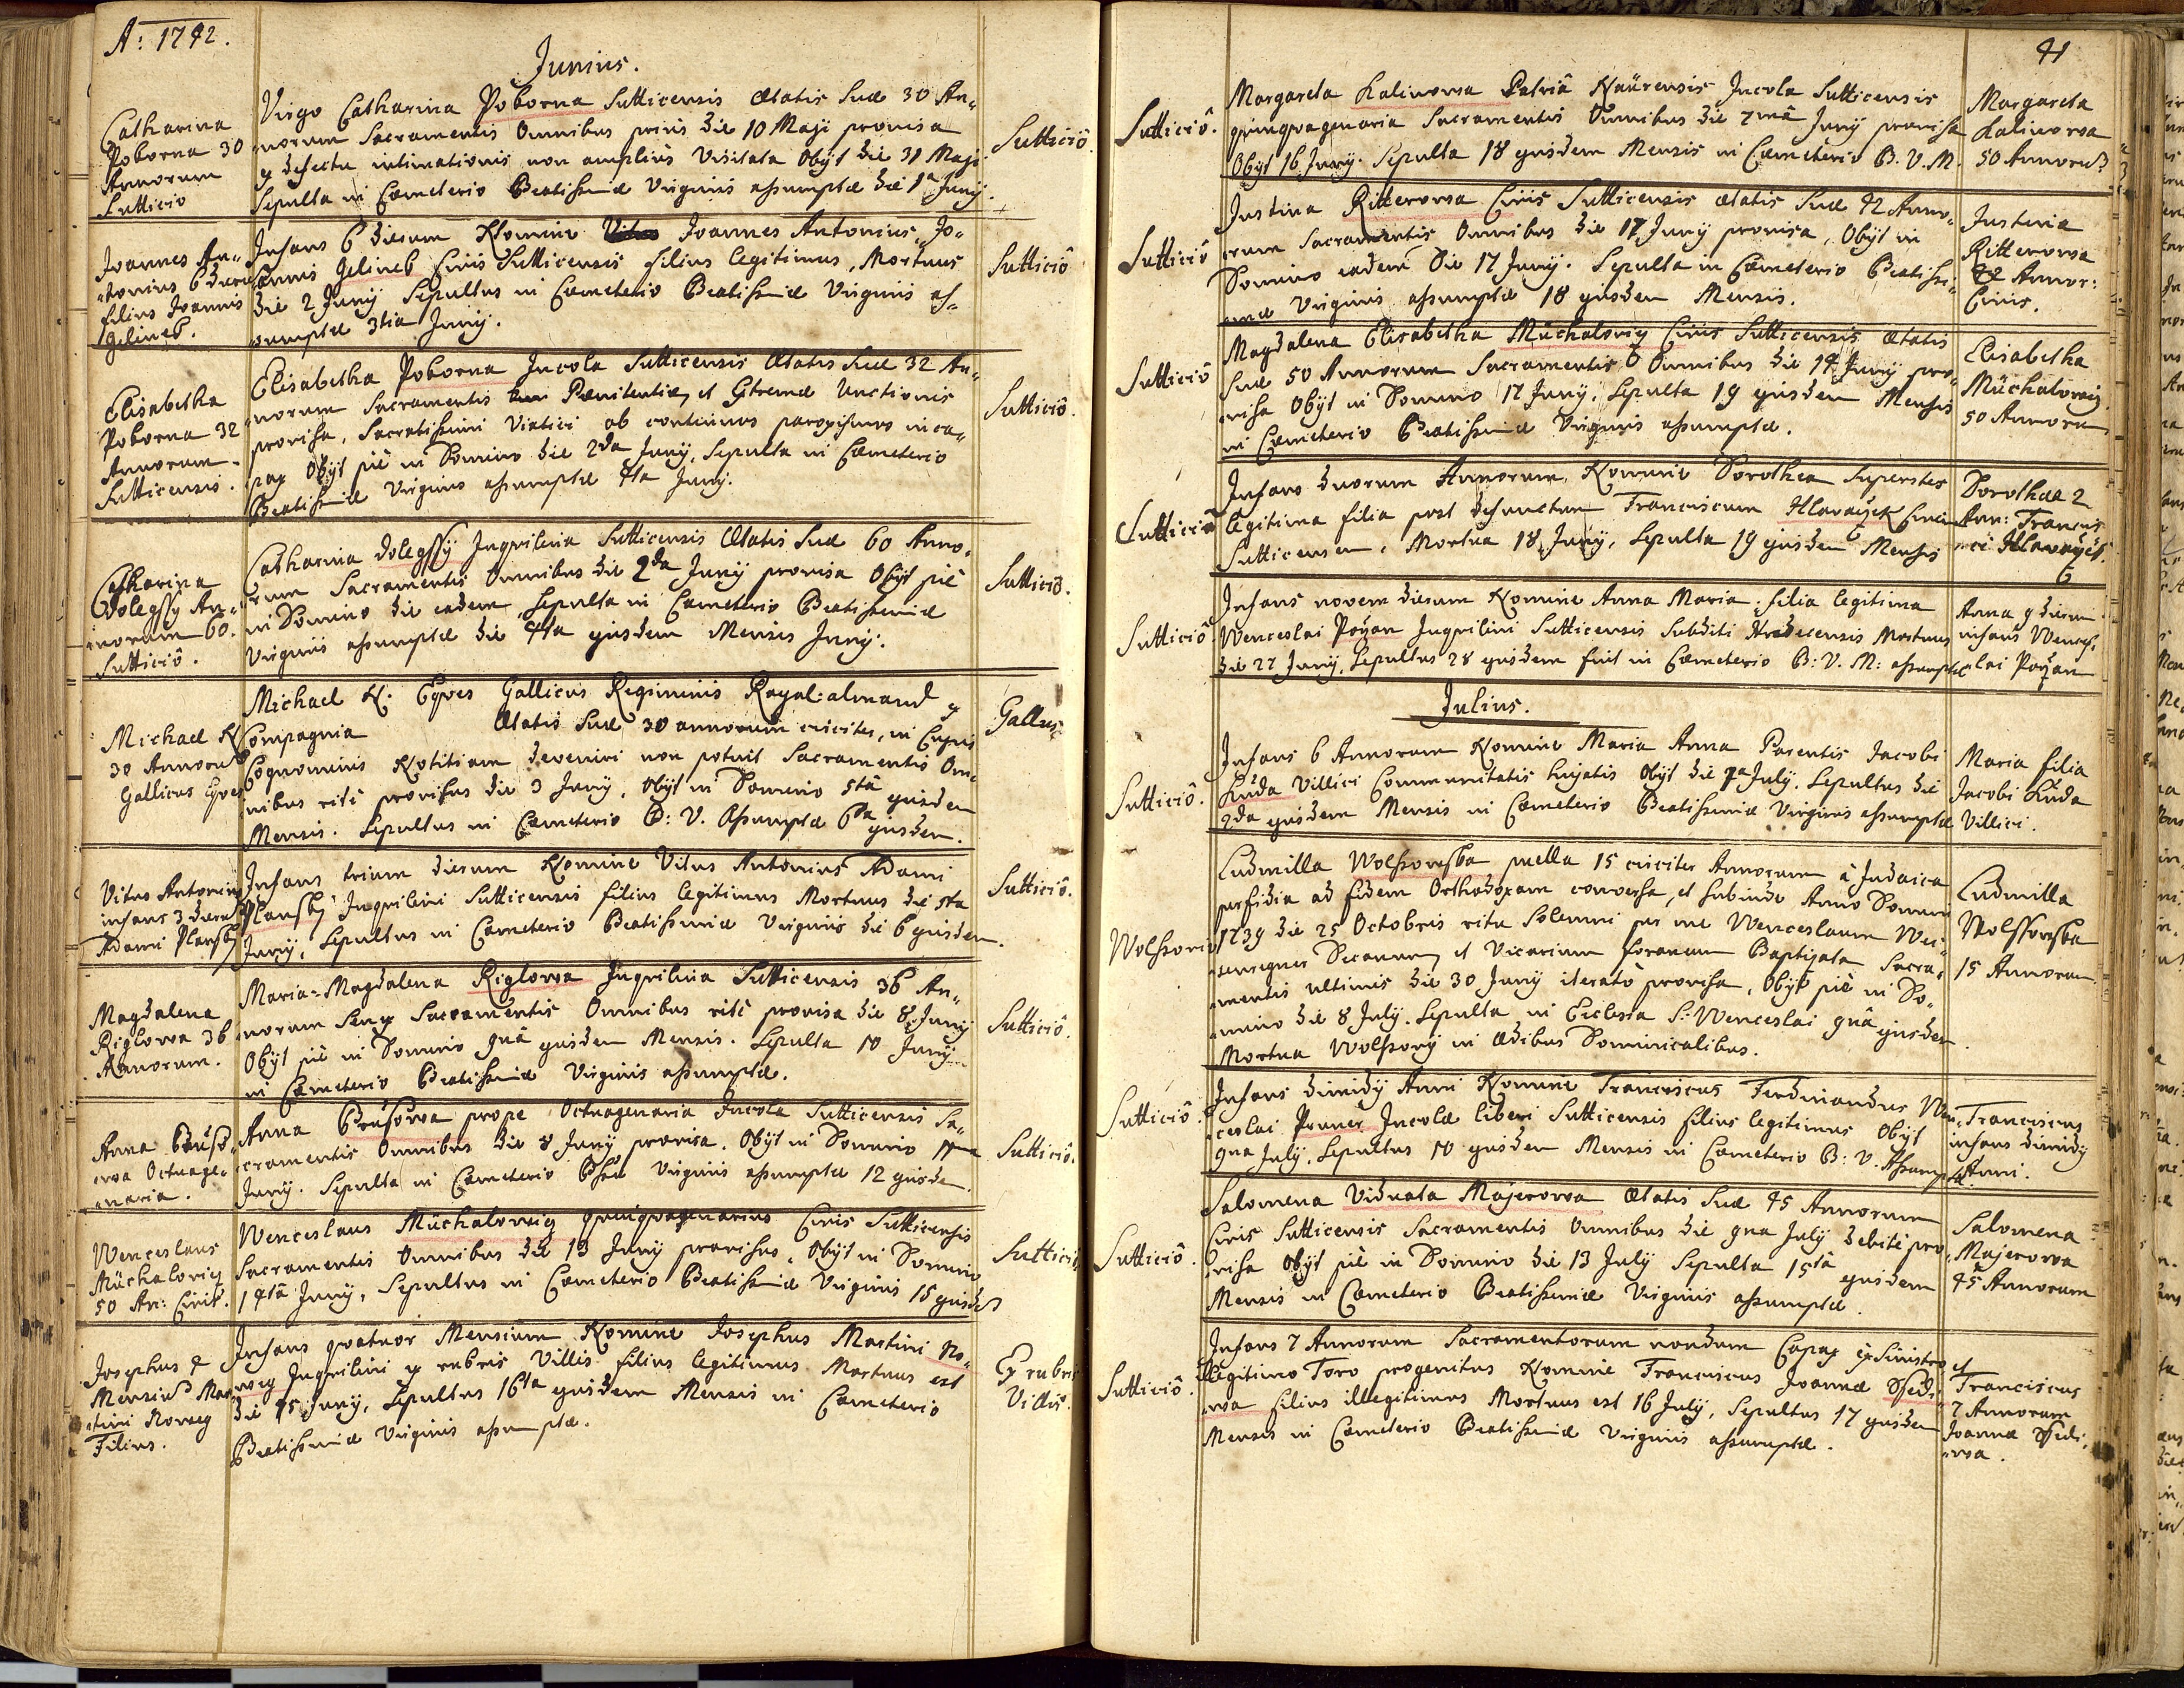 A: 1742.
Junius.
Catharina
Poborna 30
Annorum
Sutticio
Virgo Catharina Poborna Sutticensis Ætatis suæ 30 An„
„norum Sacramentis Omnibus prius die 10 Maji provisa
defectu intimationis non amplius Visitata Obijt die 31 Maji
Sepulta in Cœmeterio Beatissimæ Virginis assumptæ die 1a Junij.
Sutticiô.
Joannes An„
„tonius 6 dieru
filius Joannis
Jelineb.
Infans 6 dierum Nomine Joannes Antonius, Jo„
„annis Jelineb Civis Sutticensis filius legitimus, Mortuus
die 2 Junij Sepultus in Cœmeterio Beatissimæ Virginis as„
„sumptæ 3tia Junij.
Sutticiô
Elisabetha
Poborna 32
Annorum
Sutticensis.
Elisabetha Poborna Incola Sutticensis Ætatis suæ 32 An„
„norum Sacramentis Pœnitentiæ, et Extremæ Unctionis
provisa, Sacratissimi Viatici ob continuos paroxismos inca„
pax Obijt piè in Domino die 2da Junij, Sepulta in Cœmeterio
Beatissimæ Virginis assumptæ 4ta Junij.
Sutticiô.
Catharina
Dolegssy An„
„norum 60.
Sutticiô.
Catharina Dolegssÿ Inqvilina Sutticensis Ætatis suæ 60 Anno„
rum Sacramentis Omnibus die 2da Junij provisa Obijt piè
in Domino die eadem, Sepulta in Cœmeterio Beatissimæ
Virginis assumptæ die 4ta ejusdem Mensis Junij.
Sutticiô.
Michael N
30 Annoru
Gallicus Eqves
Michael N: Eqves Gallicus Regiminis Royal: almand
Compagnia Ætatis suæ 30 annorum circiter, in Cujus
Cognominis Notitiam deveniri non potuit Sacramentis Om„
nibus ritè provisus die 3 Junij, Obijt in Domino 5tâ ejusdem
Mensis. Sepultus in Cœmeterio B: V. Assumptæ 6ta ejusdem.
Gallus
Vitus Antonius
infans 3 dieru
Adami Planský
Infans trium dierum Nomine Vitus Antonius Adami
Planský Inqvilini Sutticensis filius legitimus Mortuus die 5ta
Junij, Sepultus in Cœmeterio Beatissimæ Virginis die 6 ejusdem.
Sutticiô.
Magdalena
Riglowa 36
Annorum.
Maria-Magdalena Riglowa Inqvilina Sutticensis 36 An„
norum Sacramentis Omnibus ritè provisa die 8 Junij
Obijt piè in Domino 9nâ ejusdem Mensis. Sepulta 10 Junij
in Cœmeterio Beatissimæ Virginis assumptæ.
Sutticiô.
Anna
„owa Octuage„
„naria.
Anna prope Octuagenaria Incola Sutticensis Sa„
cramentis Omnibus die 8 Junij provisa. Obijt in Domino 11ma
Junij. Sepulta in Cœmeterio Virginis assumptæ 12 ejusdem.
Sutticiô.
Wenceslaus
Müchalowicz
50 An: Civis.
Wenceslaus Müchalowicz qvinqvagenarius Civis Sutticensis
Sacramentis Omnibus die 13 Junij provisus, Obijt in Domino
14tâ Junij, Sepultus in Cœmeterio Beatissimæ Virginis 15 ejusdem
Sutticij.
Josephus 4
Mensium Mar„
„tini Noweg
Filius.
Infans qvatuor Mensium Nomine Josephus Martini No„
„weg Inqvilini ex rubris Villis filius legitimus Mortuus est
die 15 Junij, Sepultus 16ta ejusdem Mensis in Cœmeterio
Beatissimæ Virginis assumptæ.
Ex rubris
Villis.
41
Sutticiô.
Margareta Kalinowa Patriâ Incola Sutticensis
qvinqvagenaria Sacramentis Omnibus die 7mâ Junij provisa
Obijt 16 Junij. Sepulta 18 ejusdem Mensis in Cœmeterio B. V. M.
Margareta
Kalinowa
50 Annorum
Sutticiô
Justina Ritterowa Civis Sutticensis ætatis suæ 42 Anno„
rum Sacramentis Omnibus die 17 Junij provisa, Obijt in
Domino eadem Die 17 Junij. Sepulta in Cœmeterio Beatissi„
„mæ Virginis assumptæ 18 ejusdem Mensis.
Justina
Ritterowa
42 Annor:
Civis.
Sutticiô
Magdalena Elisabetha Müchalowicz Civis Sutticensis ætatis
suæ 50 Annorum Sacramentis Omnibus die 14 Junij pro„
„visa Obijt in Domino 17 Junij, Sepulta 19 ejusdem Mensis
in Cœmeterio Beatissimæ Virginis assumptæ.
Elisabetha
Müchalowicz
50 Annorum
Sutticiô
Infans duorum Annorum, Nomine Dorothea Superstes
legitima filia post defunctum Franciscum Hlavaczek Civem
Sutticensem, Mortua 18 Junij, Sepulta 19 ejusdem Mensis
Dorothea 2
Ann: Francis„
„ci Hlavaczek
Sutticiô.
Infans novem dierum Nomine Anna Maria filia legitima
Wenceslai Poȝan Inqvilini Sutticensis Subditi Mortuus
die 27 Junij, Sepultus 28 ejusdem fuit in Cœmeterio B: V. M: assumptæ
Anna 9 dierum
infans Wences„
„lai Poȝan
Julius.
Sutticiô.
Infans 6 Annorum Nomine Maria Anna Parentis Jacobi
Kuda Villici Communitatis hujatis Obijt die 1a July. Sepultus die
2da ejusdem Mensis in Cœmeterio Beatissimæ Virginis assumptæ
Maria filia
Jacobi Kuda
Villici.
Wolssovio
Ludmilla Wolssowsba puella 15 circiter Annorum â Judaica
perfidia ad fidem Orthodoxam conversa, et subinde Anno Domini
1739 die 25 Octobris ritu solemni per me Wenceslaum
Decanum, et Vicarium foraneum Baptizata Sacra„
„mentis ultimis die 30 Junij iteratò provisa, Obijt piè in Do„
„mino die 8 July. Sepulta in Ecclesia S: Wenceslai 9nâ ejusdem
Mortua Wolssovij in ædibus Dominicalibus.
Ludmilla
Wolssowsba
15 Annorum
Sutticiô.
Infans dimidij Anni Nomine Franciscus Ferdinandus Wen„
„ceslai Pruner Incolæ liberi Sutticensis filius legitimus Obijt
9na July, Sepultus 10 ejusdem Mensis in Cœmeterio B: V. Assumptæ
Franciscus
infans dimidij
Anni.
Sutticiô.
Salomena Viduata Majerowa Ætatis suæ 45 Annorum
Civis Sutticensis Sacramentis Omnibus die 9na July debitè pro„
„visa Obijt piè in Domino die 13 July Sepulta 15tâ ejusdem
Mensis in Cœmeterio Beatissimæ Virginis assumptæ.
Salomena
Majerowa
45 Annorum
Sutticiô.
Infans 7 Annorum Sacramentorum nondum Capax ex Sinistro et
Illegitimo Toro progenitus Nomine Franciscus Joannæ
„wa filius illegitimus Mortuus est 16 July, Sepultus 17 ejusdem
Mensis in Cœmeterio Beatissimæ Virginis assumptæ.
Franciscus
7 Annorum
Joannæ
„wa.